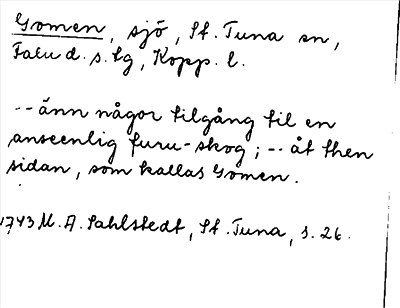 Gomen, sjö, St. Tuna sn,
Falu d. s. lg, Kopp. l.
-- änn någor tilgång til en
anseenlig furu-skog; -- åt then
sidan, som kallas Gomen.
1743 M. A. Sahlstedt, St. Tuna, s. 26.